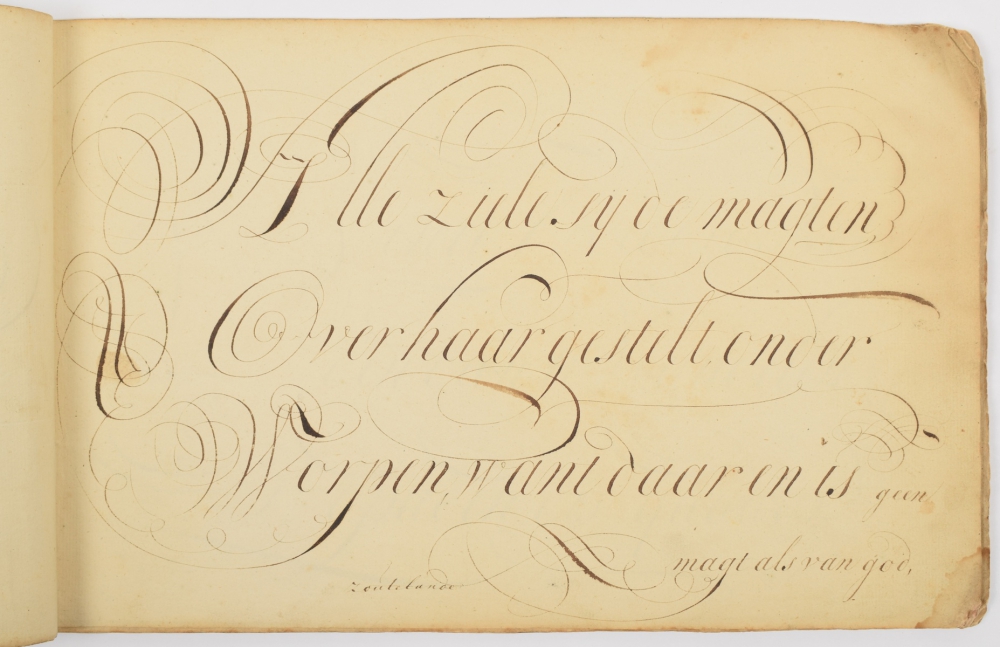 Alle ziele sy de magten,
Over haar gestelt, onder
Worpen, want daar en is geen
magt als van god,
zoutelande